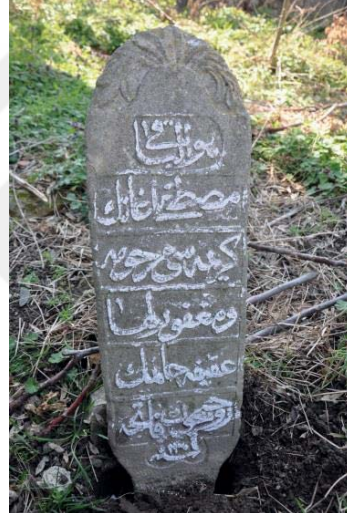 هو الباقي
مصطفى اغانك
كريمه سى مرحومه
ومغفور لها
عفيفه خانمك
روحيچون فاتحه
سنه